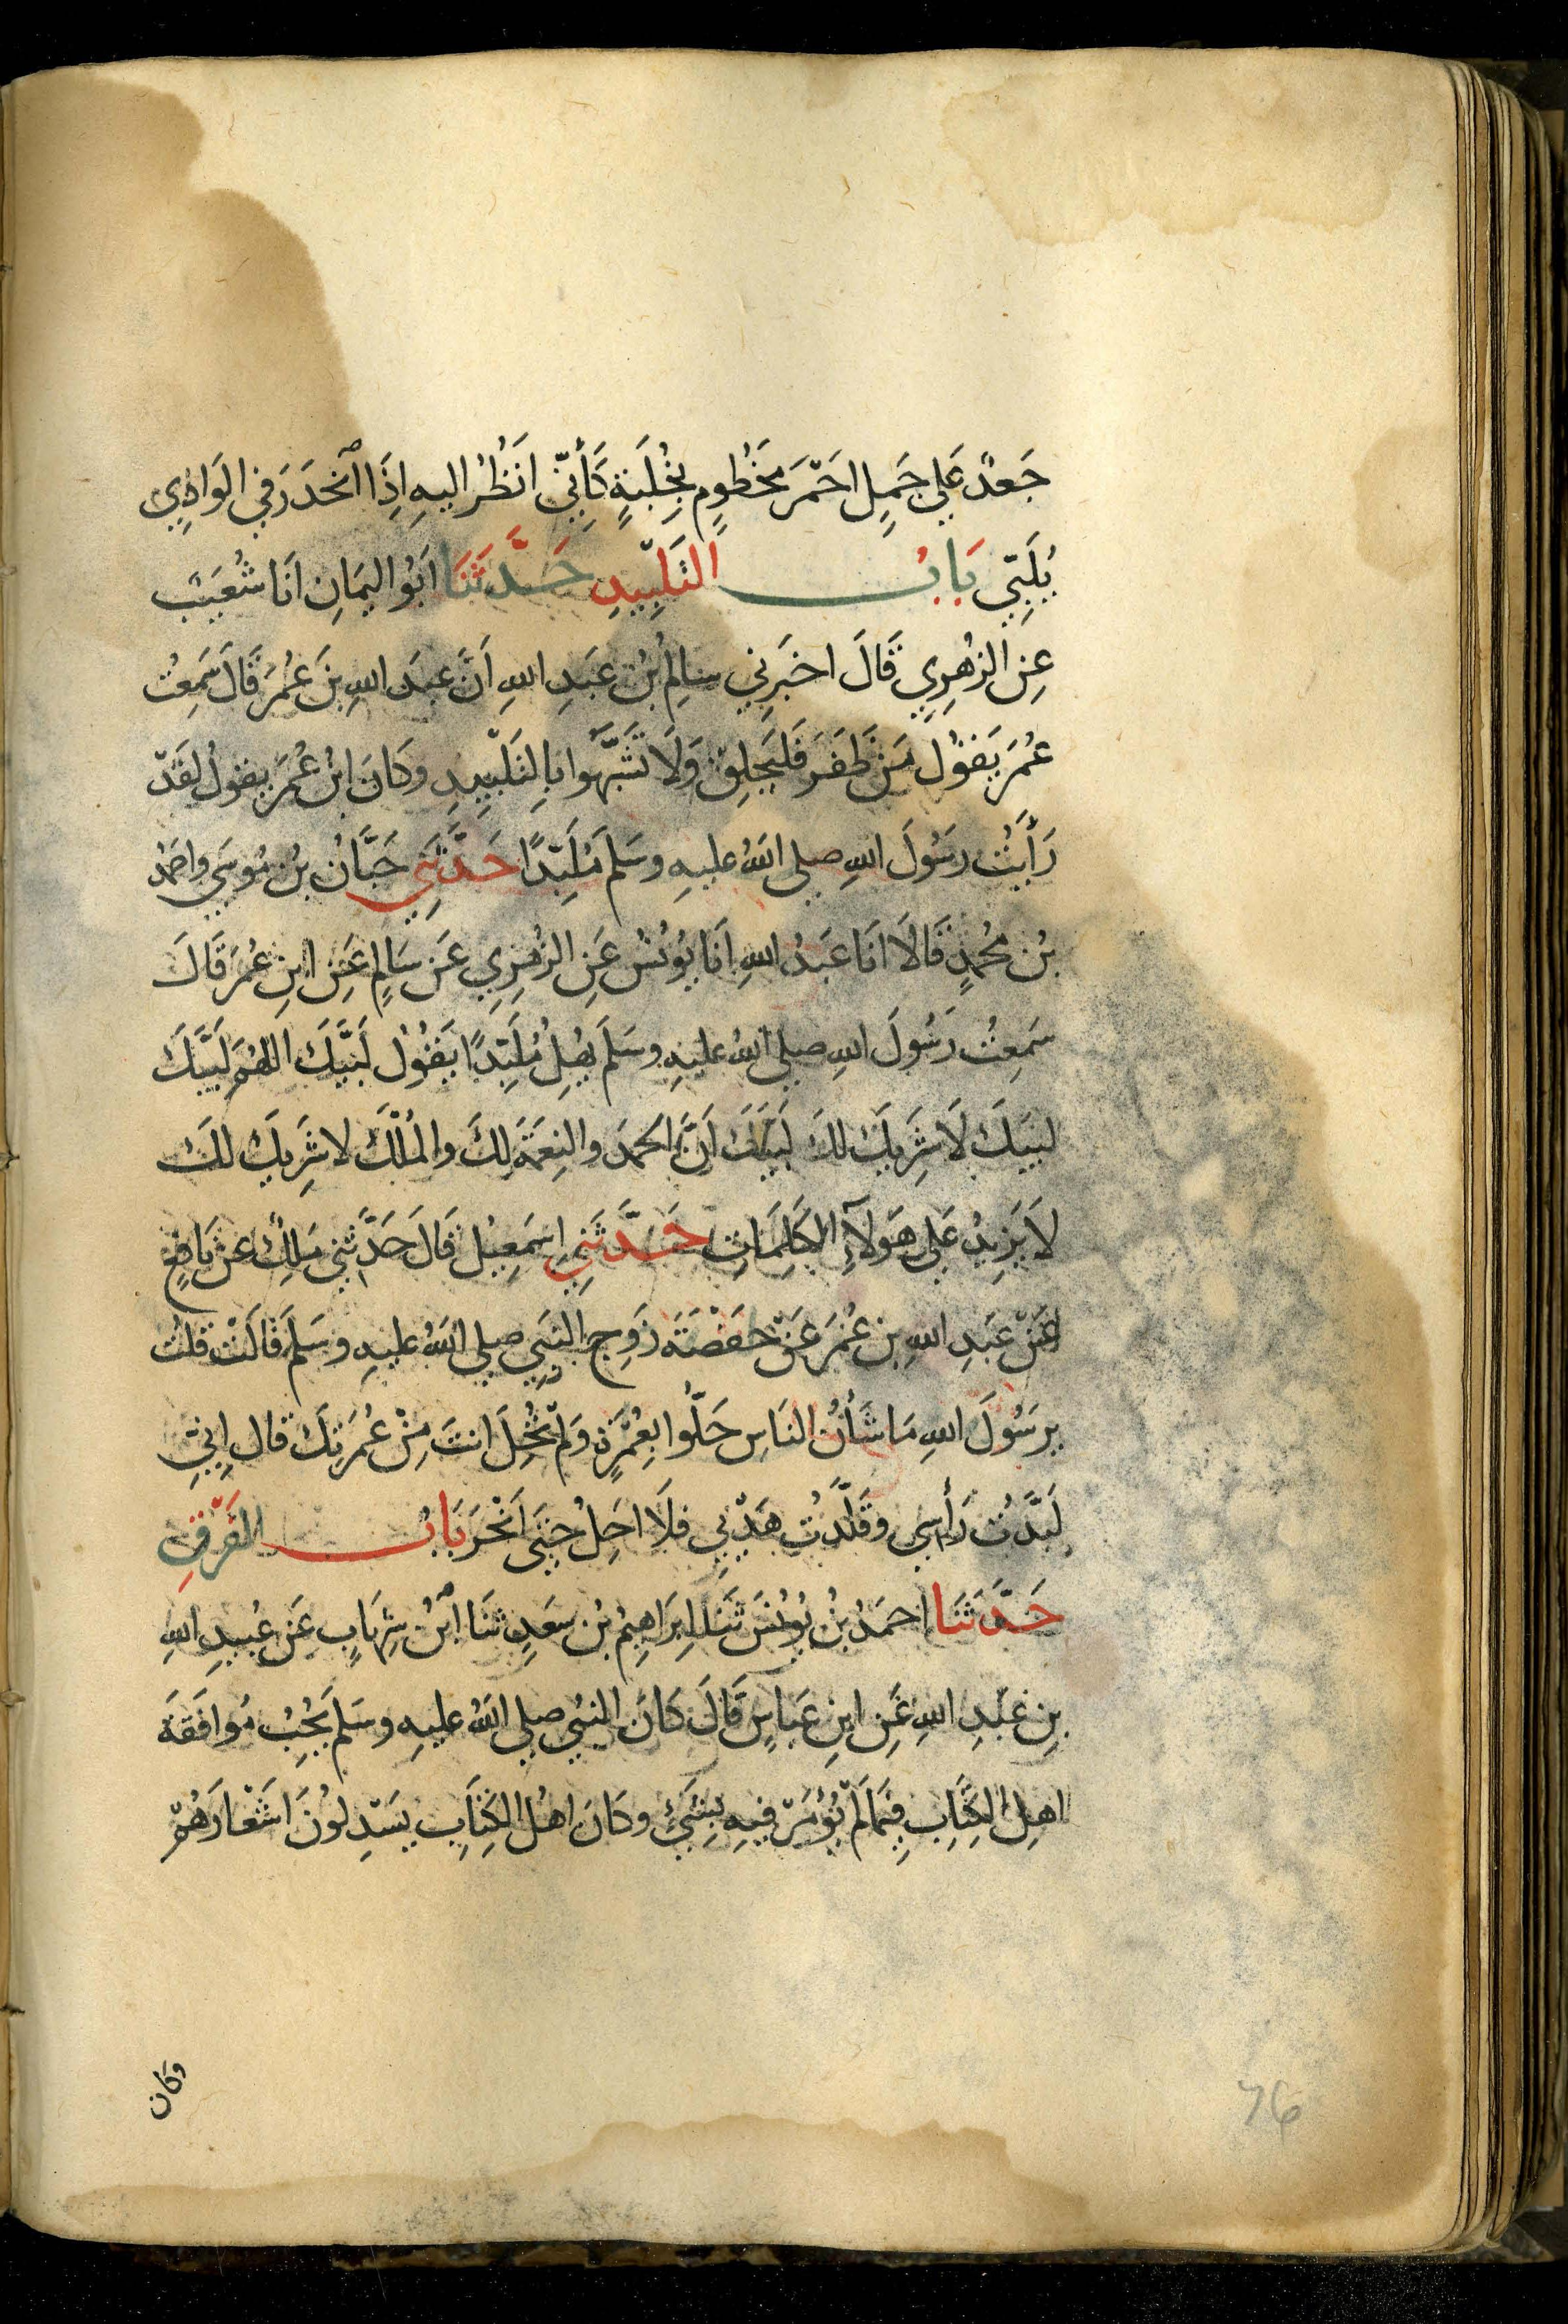 جَعدٌ عَلى جَمِلٍ احَمَرَ مَخطُومٍ بِخُلبَةٍ كَأَنِّي انَظُرُ اليهِ اِذَا اٱنحَدَرَ في الوَادِي
يُلَبِّي بَابُ التَلبِيدِ حَدَّثَنَا ابَوُ اليمَانِ انَا شُعَيبٌ
عِن الزُهرِيِ قَالَ اخبَرَنِي سَالِمُ بُن عَبَدِ اللهِ اَنَّ عبدَ اللهِ بنَ عُمَرَ قَالَ سَمِعتُ
عُمَرَ يَقوُلُ مَنْ ظَفَرَ فَليَحلِقْ وَلَا تَشَبَّهَوُا بالتَلبِيدِ وكَانَ ابنُ عُمَرَ يقولُ لقَدْ
رَأَيَتُ رسَوُلَ اللهِ صلى اللهُ عليهِ وسَلمَ مُلَبِّدًا حَدَّثَنِي حَبَّانُ بنُ مُوسَى واحَمدُ
بنُ محُمدٍ قَالَا انَا عَبَدُ اللهِ انَا يُونُسُ عَنِ الزُهرِيِ عَن سَالِمٍ عَنِ ابنِ عُمَرَ قَالَ
سَمِعتُ رَسُولَ اللهِ صلى اللهُ عليهِ وسَلَمَ يهُلِ مُلَبِّدًا يَقوُلُ لَبَّيكَ اللهُمَ لَبَّيكَ
لبيَكَ لَا شَرِيكَ لكَ لَبَيَكَ اَنَّ الحمدَ والنِعمَةَ لكَ والمُلْكَ لا شَرِيكَ لكَ
لاَ يَزيدُ عَلى هَولآءِ الكَلِمَاتِ حَدَّثَنِي اِسَمعِيلُ قَالَ حَدَّثَنِي مَالِكٌ عَن نَافِعٍ
عَنْ عبَدِ اللهِ بن عُمَرَ عَنْ حَفْصَةَ زَوجِ النبَيِ صلى اللهُ عليهِ وسَلمَ قَالَتْ قُلتُ
يرسَوُلَ اللهِ مَا شَأنُ النَاسِ حَلُّوا بِعُمْرَةٍ وَلمْ تَحُلِلَ انتَ مِنْ عُمرَتِكَ قَالَ اِنِيِّ
لَبَّدْتُ رَأسِي وقَلَّدتُ هَدْيِي فلَا احَلِ حَتَى اَنْحَرَ بَابُ الفَرْقِ
حَدَّثَنَا احمَدُ بنُ يُونُسَ ثَنَا اِبَراهِيمُ بُن سَعَدٍ ثنَا ابُن شِهَابٍ عَن عُبيَدِ اللهِ
بِن عَبْدِ اللهِ عَنِ ابنِ عَباسٍ قَالَ كَانَ النبيُ صلى اللهُ عليهِ وسَلمَ يُحِبُ مُوافَقَةَ
اهلِ الكِتَابِ فيِمَا لَمْ يُؤمَرْ فيهِ بِشَيءٍ وكَانَ اهُل الكِتَابِ يسَدِلوُنَ اشَعَارَهُمْ
وكان
76